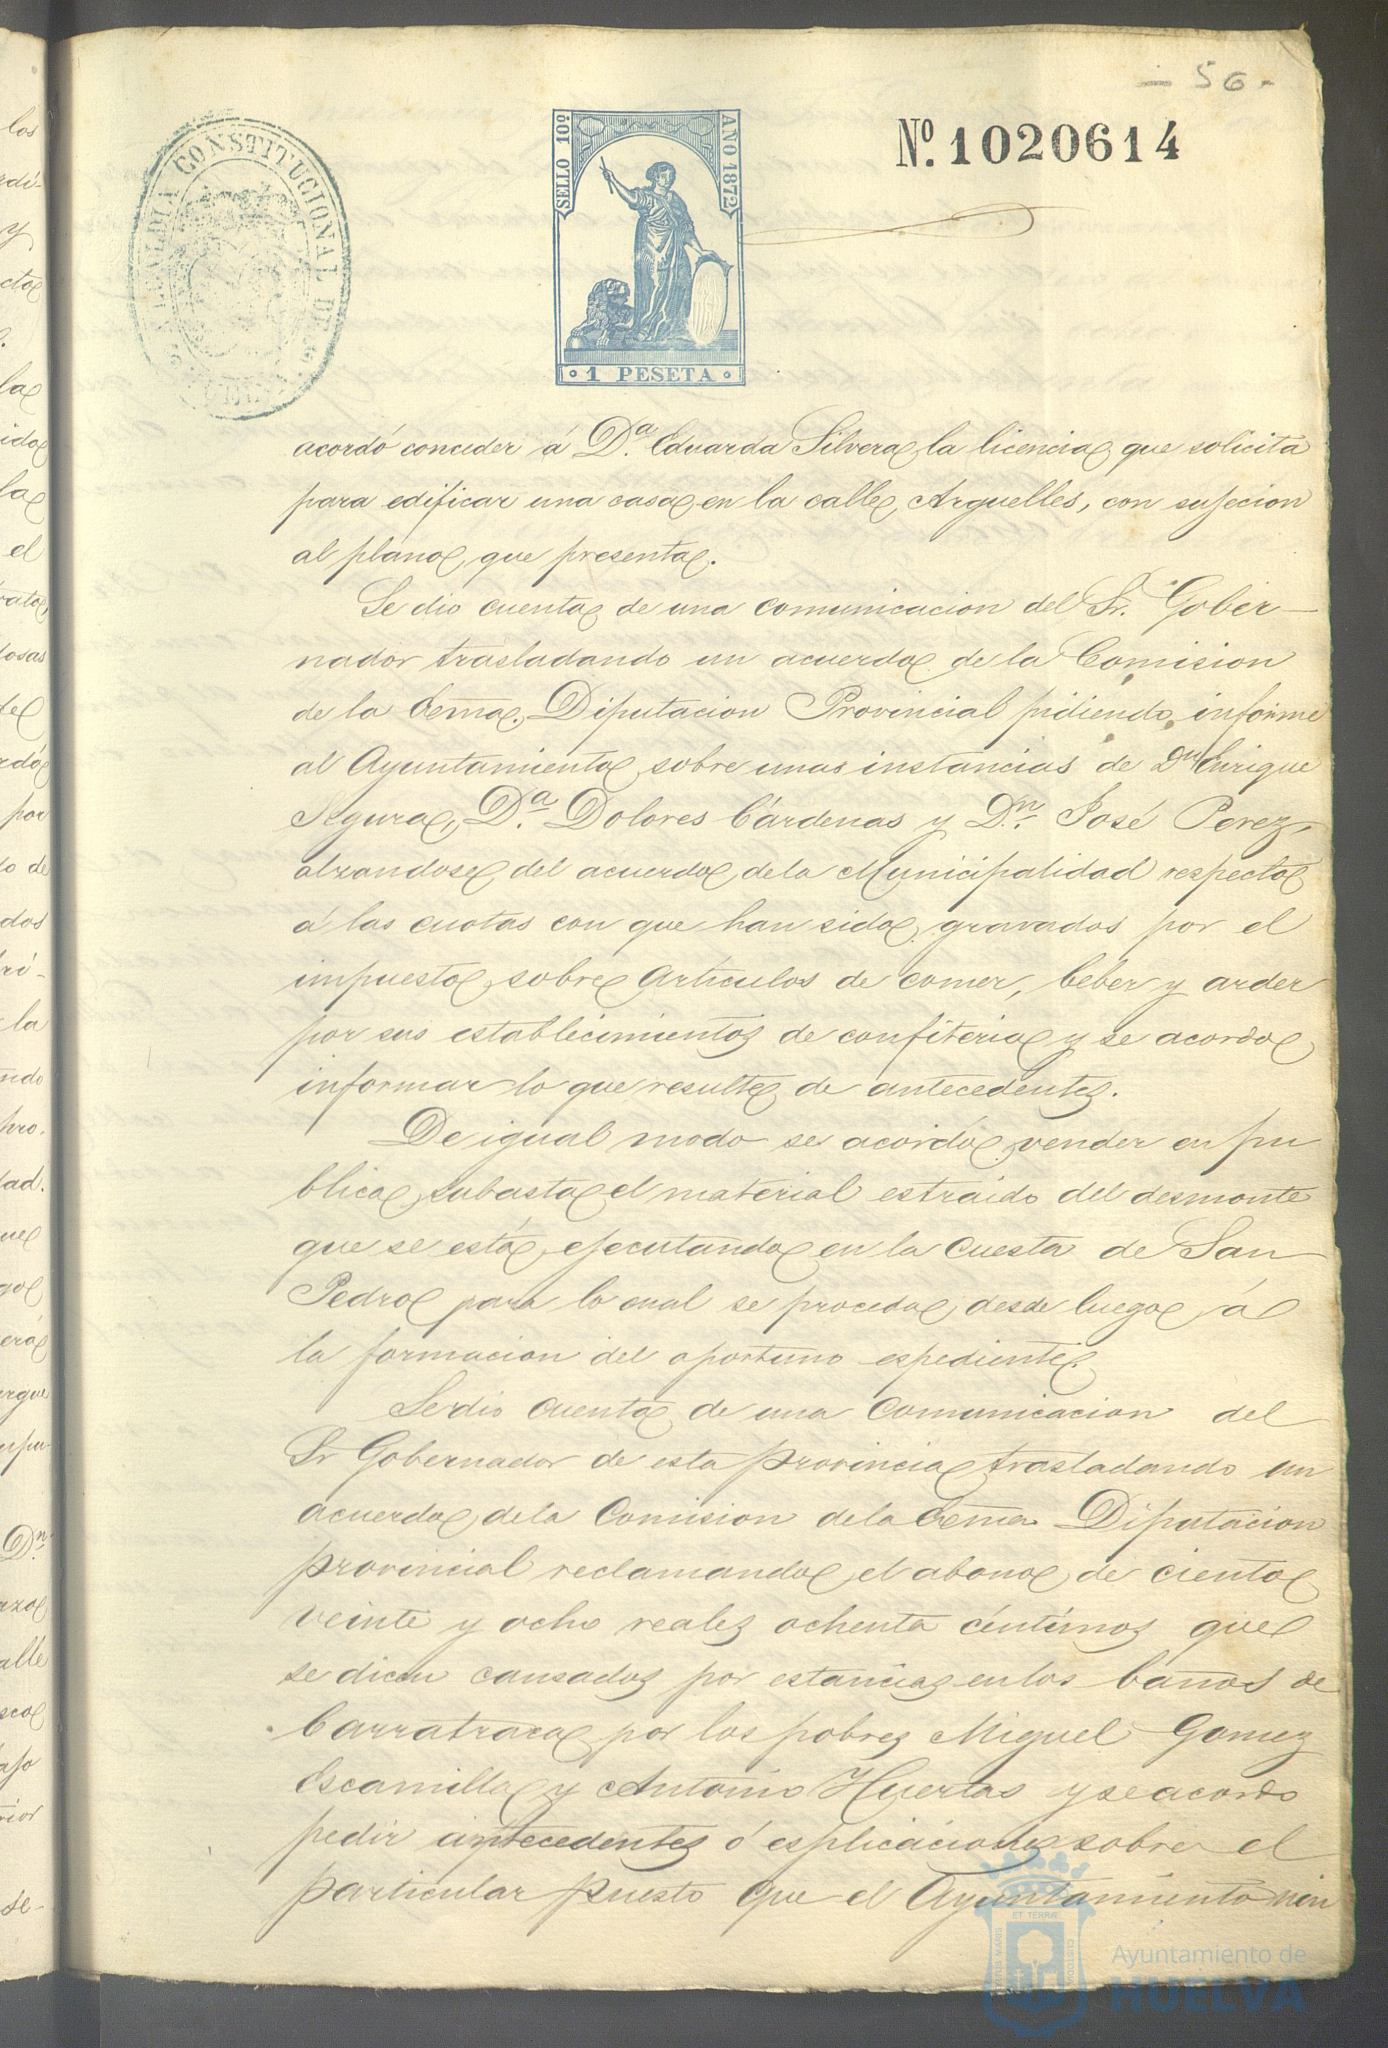 - 56 -
Nº. 1020614
ALCALDIA CONSTITUCIONAL DE
SELLO 10º
AÑO 1872
1 PESETA
acordó conceder á Dª. Eduarda Silvera la licencia que solicita
para edificar una casa en la calle Arguelles, con sujecion
al plano que presenta.
Se dio cuenta de una comunicacion del Sr. Gober-
nador trasladando un acuerdo de la Comision
de la Exma. Diputacion Provincial pidiendo informe
al Ayuntamiento sobre unas instancias de Dn Enrique
Segura, Dª. Dolores Cárdenas y Dn. José Perez,
alzandose del acuerdo de la Municipalidad respecto
á las cuotas con que han sido gravados por el
impuesto sobre articulos de comer, beber y arder
por sus establecimientos de confiteria y se acordo
informar lo que resulte de antecedentes.
De igual modo se acordó vender en pu
blica subasta el material estraido del desmonte
que se está ejecutando en la Cuesta de San
Pedro para lo cual se proceda desde luego á
la formacion del oportuno espediente.
Se dio cuenta de una comunicacion del
Sr Gobernador de esta provincia trasladando un
acuerdo de la Comision de la Exma. Diputacion
provincial reclamando el abono de ciento
veinte y ocho reales ochenta céntimos que
se dicen causados por estancias en los baños de
Carratraca por los pobres Miguel Gomez
Escamilla y Antonio Huertas y se acordo
pedir antecedentes ó esplicaciones sobre el
particular puesto que el Ayuntamiento nin
los
y
la
el
por
de
dos
la
Dn.
alle
se-
ET TERRÆ
Ayuntamiento de
HUELVA